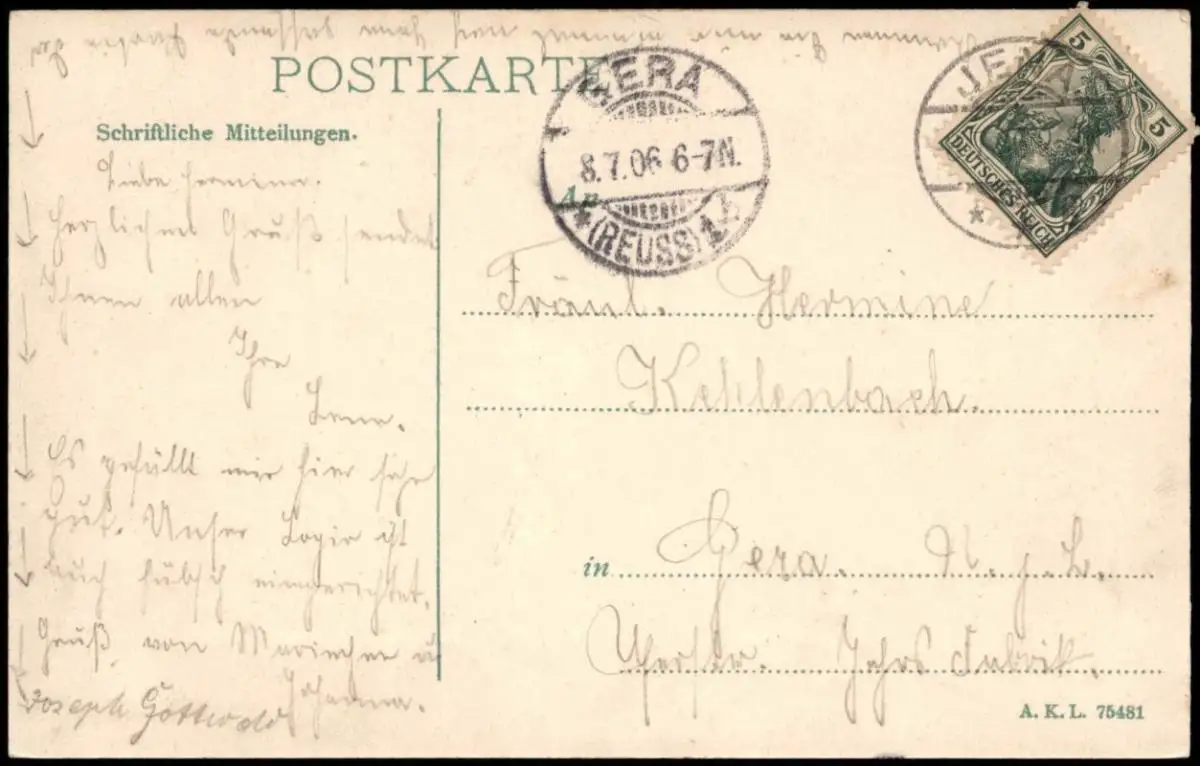 POSTKARTE
Schriftliche Mitteilungen.
Liebe Hermine.
Herzlichen Gruß sendet
Ihnen allen
Ihre
Lene.
Es gefällt mir hier sehr
gut. Unser Logie ist
auch hübsch eingerichtet.
Gruß von Mariechen u
Johanna.
Joseph Gottwald
GERA
8.7.06 6-7N.
(REUSS)
An
JENA
5
5
DEUTSCHES REICH
Fräul. Hermine
Kehlenbach.
in Gera. R. j. L.
Jahrs Fabrik.
A. K. L. 75481